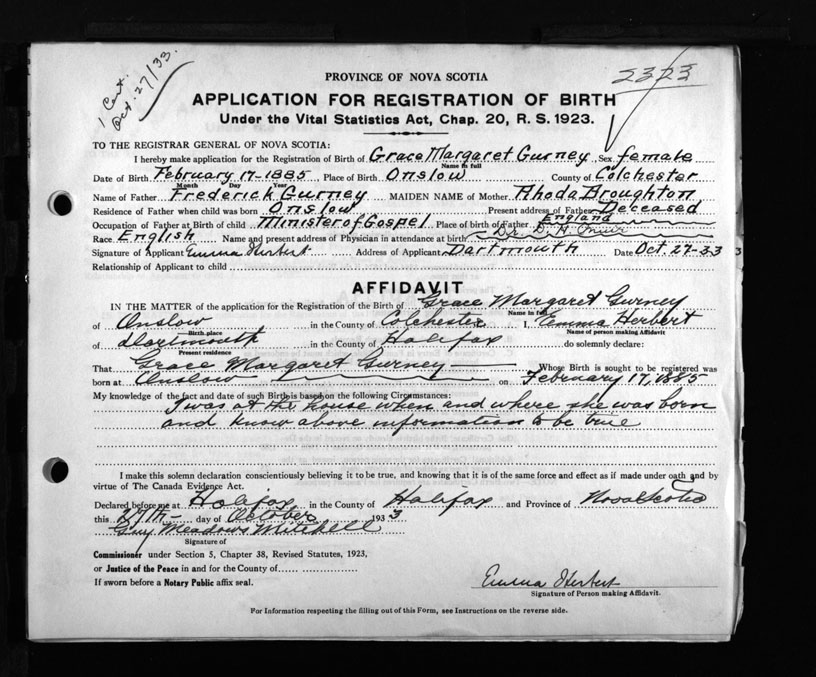 1 Cert.
Oct. 27/33.
2323
PROVINCE OF NOVA SCOTIA
APPLICATION FOR REGISTRATION OF BIRTH
Under the Vital Statistics Act, Chap. 20, R. S. 1923.
TO THE REGISTRAR GENERAL OF NOVA SCOTIA:
I hereby make application for the Registration of Birth of Grace Margaret Gurney Sex female
Name in full
Date of Birth February 17-1885 Place of Birth Onslow County of Colchester
Month Day Year
Name of Father Frederick Gurney MAIDEN NAME of Mother Rhoda Broughton
Residence of Father when child was born Onslow Present address of Father Deceased
Occupation of Father at Birth of child Minister of Gospel Place of birth of Father England
Race English Name and present address of Physician in attendance at birth Dr. D. H.
Signature of Applicant Emma Herbert Address of Applicant Dartmouth Date Oct. 27-33
Relationship of Applicant to child
AFFIDAVIT
IN THE MATTER of the application for the Registration of the Birth of Grace Margaret Gurney
Name in full
of Onslow in the County of Colchester I, Emma Herbert
Birth place Name of person making Affidavit
of Dartmouth in the County of Halifax do solemnly declare:
Present residence
That Grace Margaret Gurney Whose Birth is sought to be registered was
born at Onslow on February 17, 1885
My knowledge of the fact and date of such Birth is based on the following Circumstances:
I was at the house when and where she was born
and know above information to be true
I make this solemn declaration conscientiously believing it to be true, and knowing that it is of the same force and effect as if made under oath and by
virtue of The Canada Evidence Act.
Declared before me at Halifax in the County of Halifax and Province of Nova Scotia
this 27th- day of October 1933
Guy Meadows Mitchell
Signature of
Commissioner under Section 5, Chapter 38, Revised Statutes, 1923,
or Justice of the Peace in and for the County of
If sworn before a Notary Public affix seal.
Emma Herbert
Signature of Person making Affidavit.
For Information respecting the filling out of this Form, see Instructions on the reverse side.